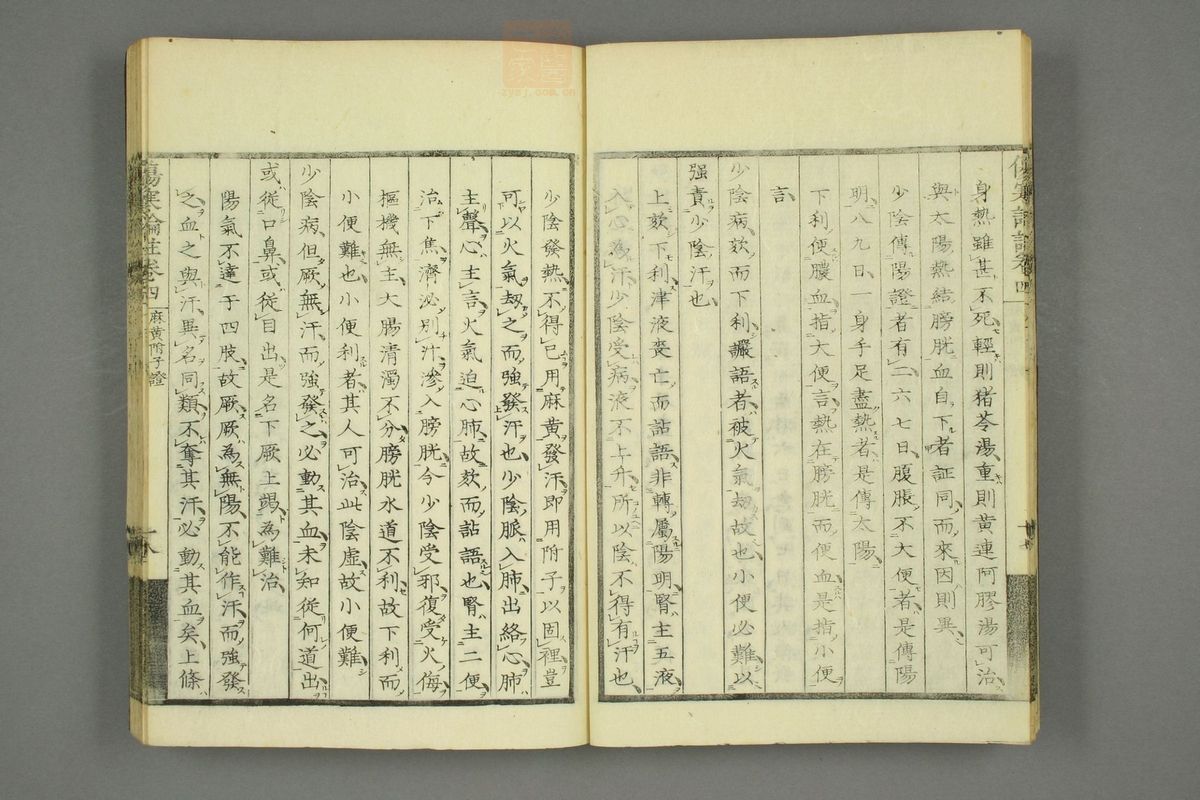 身熱雖甚不死輕則猪苓湯重則黄連阿膠湯可治
與太陽熱結膀胱血自下者証同而來因則異
少陰傳陽證者有二六七日腹脹不大便者是傳陽
明八九日一身手足盡熱者是傳太陽
下利便膿血指大便言熱在膀胱而便血是指小便
言
少陰病欬而下利讝語者被火氣劫故也小便必難以
强責少陰汗也
上欬下利津液喪亡而詀語非轉屬陽明腎主五液
入心為汗少陰受病液不上升所以陰不得有汗也
少陰發熱不得已用麻黄發汗即用附子以固裡豈
可以火氣劫之而強發汗也少陰脈入肺出絡心肺
主聲心主言火氣迫心肺故欬而詀語也腎主二便
治下焦濟泌別汁滲入膀胱今少陰受邪復受火侮
樞機無主大腸清濁不分膀胱水道不利故下利而
小便難也小便利者其人可治此陰虛故小便難
少陰病但厥無汗而強發之必動其血未知從何道出
或從口鼻或從目出是名下厥上竭為難治
陽氣不達于四肢故厥厥為無陽不能作汗而強發
之血之與汗異名同類不奪其汗必動其血矣上條
傷寒論註卷四
麻黄附子證
十八